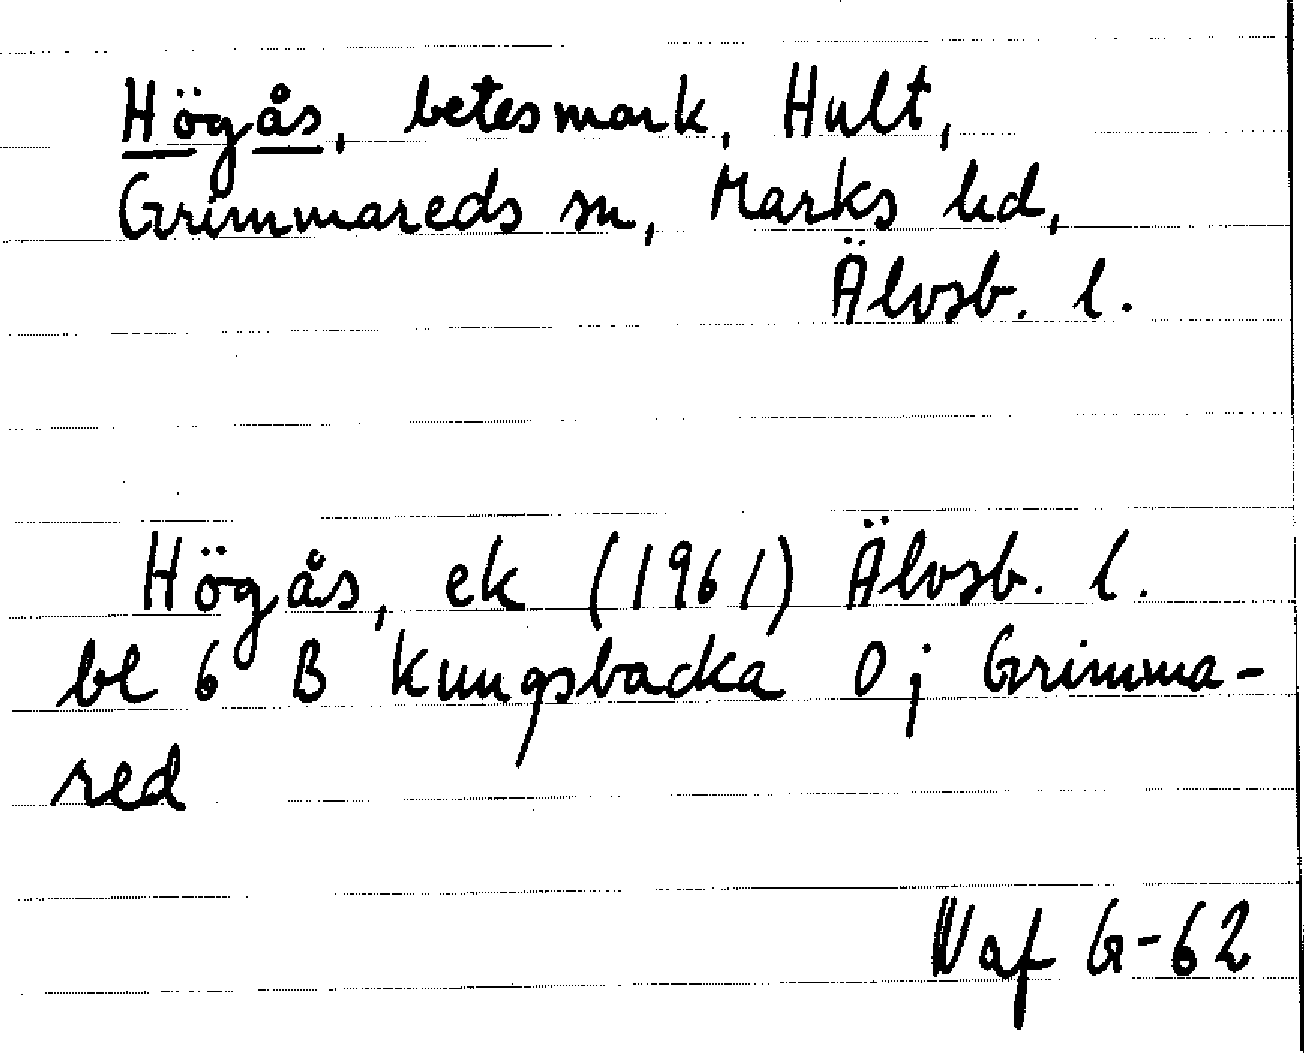 Högås, betesmark, Hult,
Grimmareds sn, Marks hd,
Älvsb. l.
Högås, ek (1961) Älvsb. l.
bl 6 B Kungsbacka O; Grimma-
red
Vaf G-62